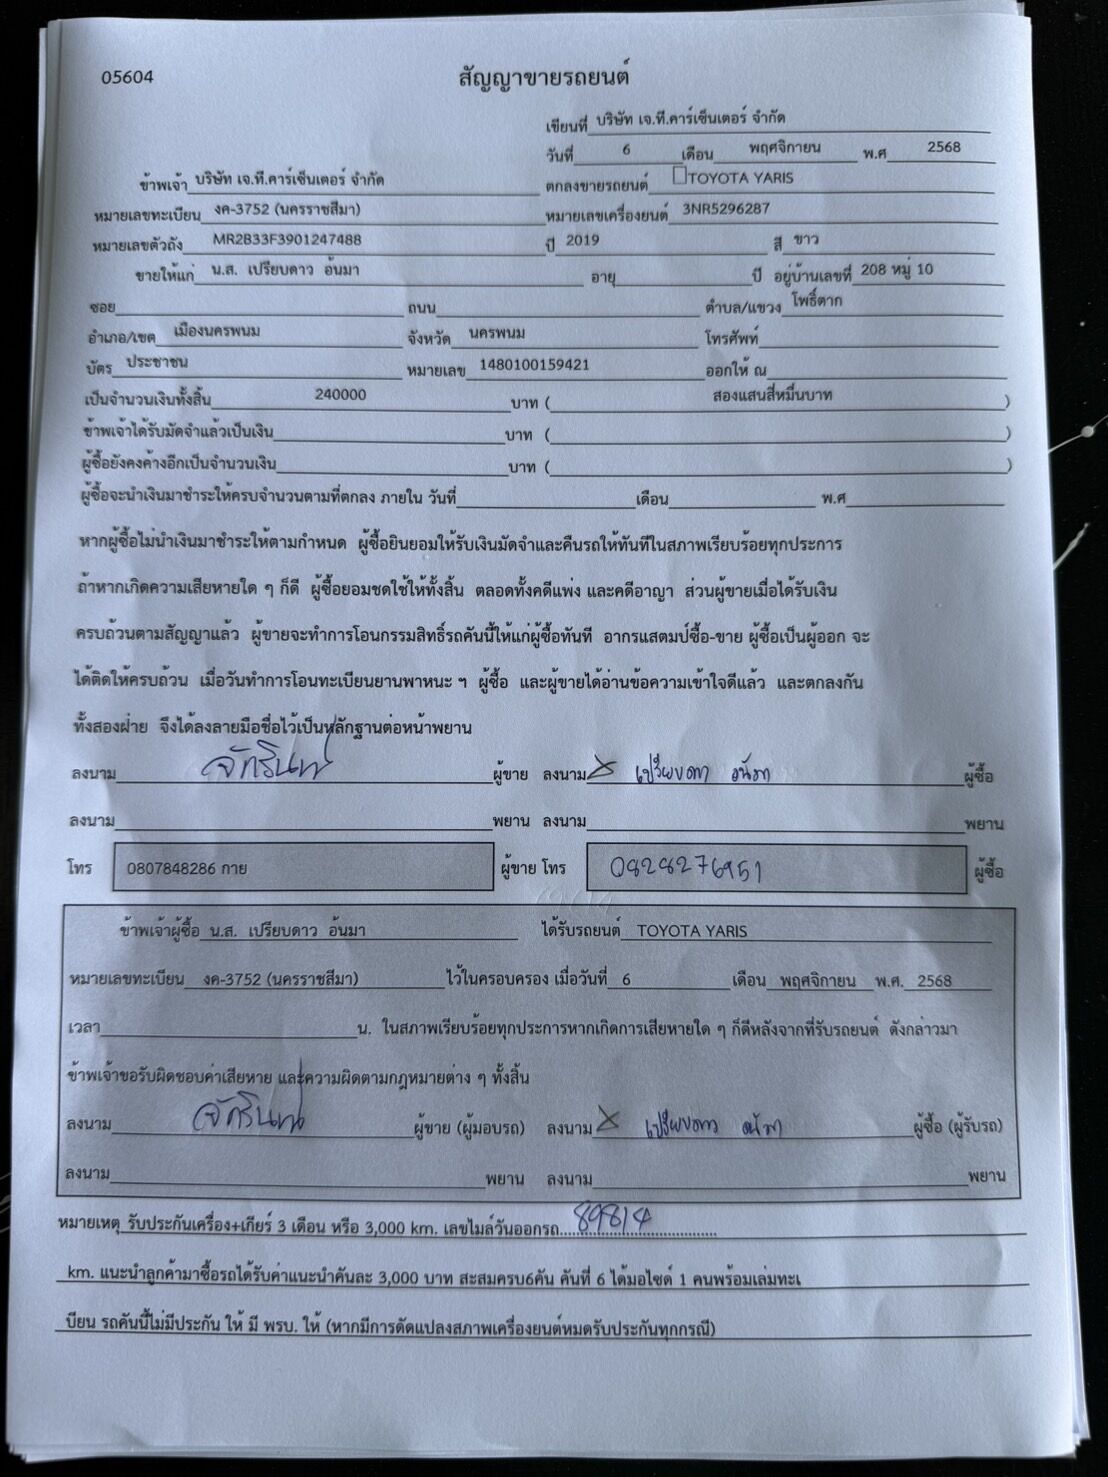 05604
สัญญาขายรถยนต์
เขียนที่ บริษัท เจ.ที.คาร์เซ็นเตอร์ จำกัด
วันที่ 6 เดือน พฤศจิกายน พ.ศ 2568
ข้าพเจ้า บริษัท เจ.ที.คาร์เซ็นเตอร์ จำกัด ตกลงขายรถยนต์ TOYOTA YARIS
หมายเลขทะเบียน งค-3752 (นครราชสีมา) หมายเลขเครื่องยนต์ 3NR5296287
หมายเลขตัวถัง MR2B33F3901247488 ปี 2019 สี ขาว
ขายให้แก่ น.ส. เปรียบดาว อ้นมา อายุ ปี อยู่บ้านเลขที่ 208 หมู่ 10
ซอย ถนน ตำบล/แขวง โพธิ์ตาก
อำเภอ/เขต เมืองนครพนม จังหวัด นครพนม โทรศัพท์
บัตร ประชาชน หมายเลข 1480100159421 ออกให้ ณ
เป็นจำนวนเงินทั้งสิ้น 240000 บาท ( สองแสนสี่หมื่นบาท )
ข้าพเจ้าได้รับมัดจำแล้วเป็นเงิน บาท ( )
ผู้ซื้อยังคงค้างอีกเป็นจำนวนเงิน บาท ( )
ผู้ซื้อจะนำเงินมาชำระให้ครบจำนวนตามที่ตกลง ภายใน วันที่ เดือน พ.ศ
หากผู้ซื้อไม่นำเงินมาชำระให้ตามกำหนด ผู้ซื้อยินยอมให้รับเงินมัดจำและคืนรถให้ทันทีในสภาพเรียบร้อยทุกประการ
ถ้าหากเกิดความเสียหายใด ๆ ก็ดี ผู้ซื้อยอมชดใช้ให้ทั้งสิ้น ตลอดทั้งคดีแพ่ง และคดีอาญา ส่วนผู้ขายเมื่อได้รับเงิน
ครบถ้วนตามสัญญาแล้ว ผู้ขายจะทำการโอนกรรมสิทธิ์รถคันนี้ให้แก่ผู้ซื้อทันที อากรแสตมป์ซื้อ-ขาย ผู้ซื้อเป็นผู้ออก จะ
ได้ติดให้ครบถ้วน เมื่อวันทำการโอนทะเบียนยานพาหนะ ฯ ผู้ซื้อ และผู้ขายได้อ่านข้อความเข้าใจดีแล้ว และตกลงกัน
ทั้งสองฝ่าย จึงได้ลงลายมือชื่อไว้เป็นหลักฐานต่อหน้าพยาน
ลงนาม จักรินทร์ ผู้ขาย ลงนาม เปรียบดาว อ้นมา ผู้ซื้อ
ลงนาม พยาน ลงนาม พยาน
โทร 0807848286 กาย ผู้ขาย โทร 0828276951 ผู้ซื้อ
ข้าพเจ้าผู้ซื้อ น.ส. เปรียบดาว อ้นมา ได้รับรถยนต์ TOYOTA YARIS
หมายเลขทะเบียน งค-3752 (นครราชสีมา) ไว้ในครอบครอง เมื่อวันที่ 6 เดือน พฤศจิกายน พ.ศ. 2568
เวลา น. ในสภาพเรียบร้อยทุกประการหากเกิดการเสียหายใด ๆ ก็ดีหลังจากที่รับรถยนต์ ดังกล่าวมา
ข้าพเจ้าขอรับผิดชอบค่าเสียหาย และความผิดตามกฎหมายต่าง ๆ ทั้งสิ้น
ลงนาม จักรินทร์ ผู้ขาย (ผู้มอบรถ) ลงนาม เปรียบดาว อ้นมา ผู้ซื้อ (ผู้รับรถ)
ลงนาม พยาน ลงนาม พยาน
หมายเหตุ รับประกันเครื่อง+เกียร์ 3 เดือน หรือ 3,000 km. เลขไมล์วันออกรถ 89814
km. แนะนำลูกค้ามาซื้อรถได้รับค่าแนะนำคันละ 3,000 บาท สะสมครบ6คัน คันที่ 6 ได้มอไซด์ 1 คนพร้อมเล่มทะเ
บียน รถคันนี้ไม่มีประกัน ให้ มี พรบ. ให้ (หากมีการดัดแปลงสภาพเครื่องยนต์หมดรับประกันทุกกรณี)